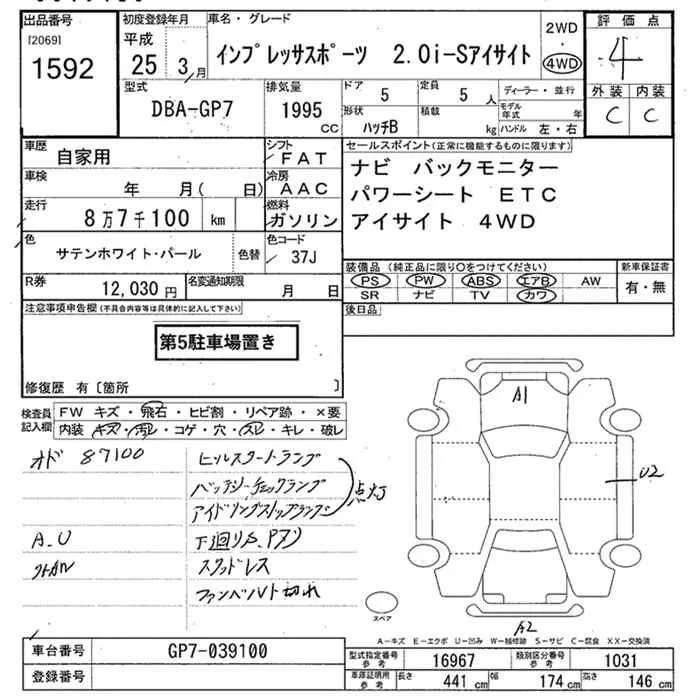 出品番号
[2069]
1592
初度登録年月
平成
25 3月
車名・グレード
インプレッサスポーツ 2.0i-Sアイサイト
2WD
・
4WD
評価点
4
外装 内装
C C
型式
DBA-GP7
排気量
1995
CC
ドア 5
定員 5 人
ディーラー・並行
形状 ハッチB
積載 kg
モデル年式 年
ハンドル 左・右
車歴
自家用
シフト
FAT
車検
年 月( 日)
冷房
AAC
走行
8万7千100 km
燃料
ガソリン
色
サテンホワイト・パール
色替
色コード
37J
R券
12,030円
名変通知期限
月 日
セールスポイント(正常に機能するものに限ります)
ナビ バックモニター
パワーシート ETC
アイサイト 4WD
装備品 (純正品に限り○をつけてください)
PS PW ABS エアB AW
SR ナビ TV カワ
新車保証書
有・無
後日品
注意事項申告欄(不具合内容等は具体的に記入して下さい)
第5駐車場置き
修復歴 有〔箇所 〕
検査員記入欄
FW キズ・飛石・ヒビ割・リペア跡・×要
内装 キズ・汚レ・コゲ・穴・スレ・キレ・破レ
オド 87100
ヒルスタートランプ
バッテリーチェックランプ
アイドリングストップランプ
点灯
A.U
下廻りS、Pスリ
スタッドレス
ファンベルト切れ
A1
U2
A2
スペア
A-キズ E-エクボ U-凹み W-補修跡 S-サビ C-腐食 XX-交換済
車台番号
GP7-039100
登録番号
型式指定番号
参考
16967
類別区分番号
参考
1031
車庫証明用
参考
長さ 441 cm
幅 174 cm
高さ 146 cm